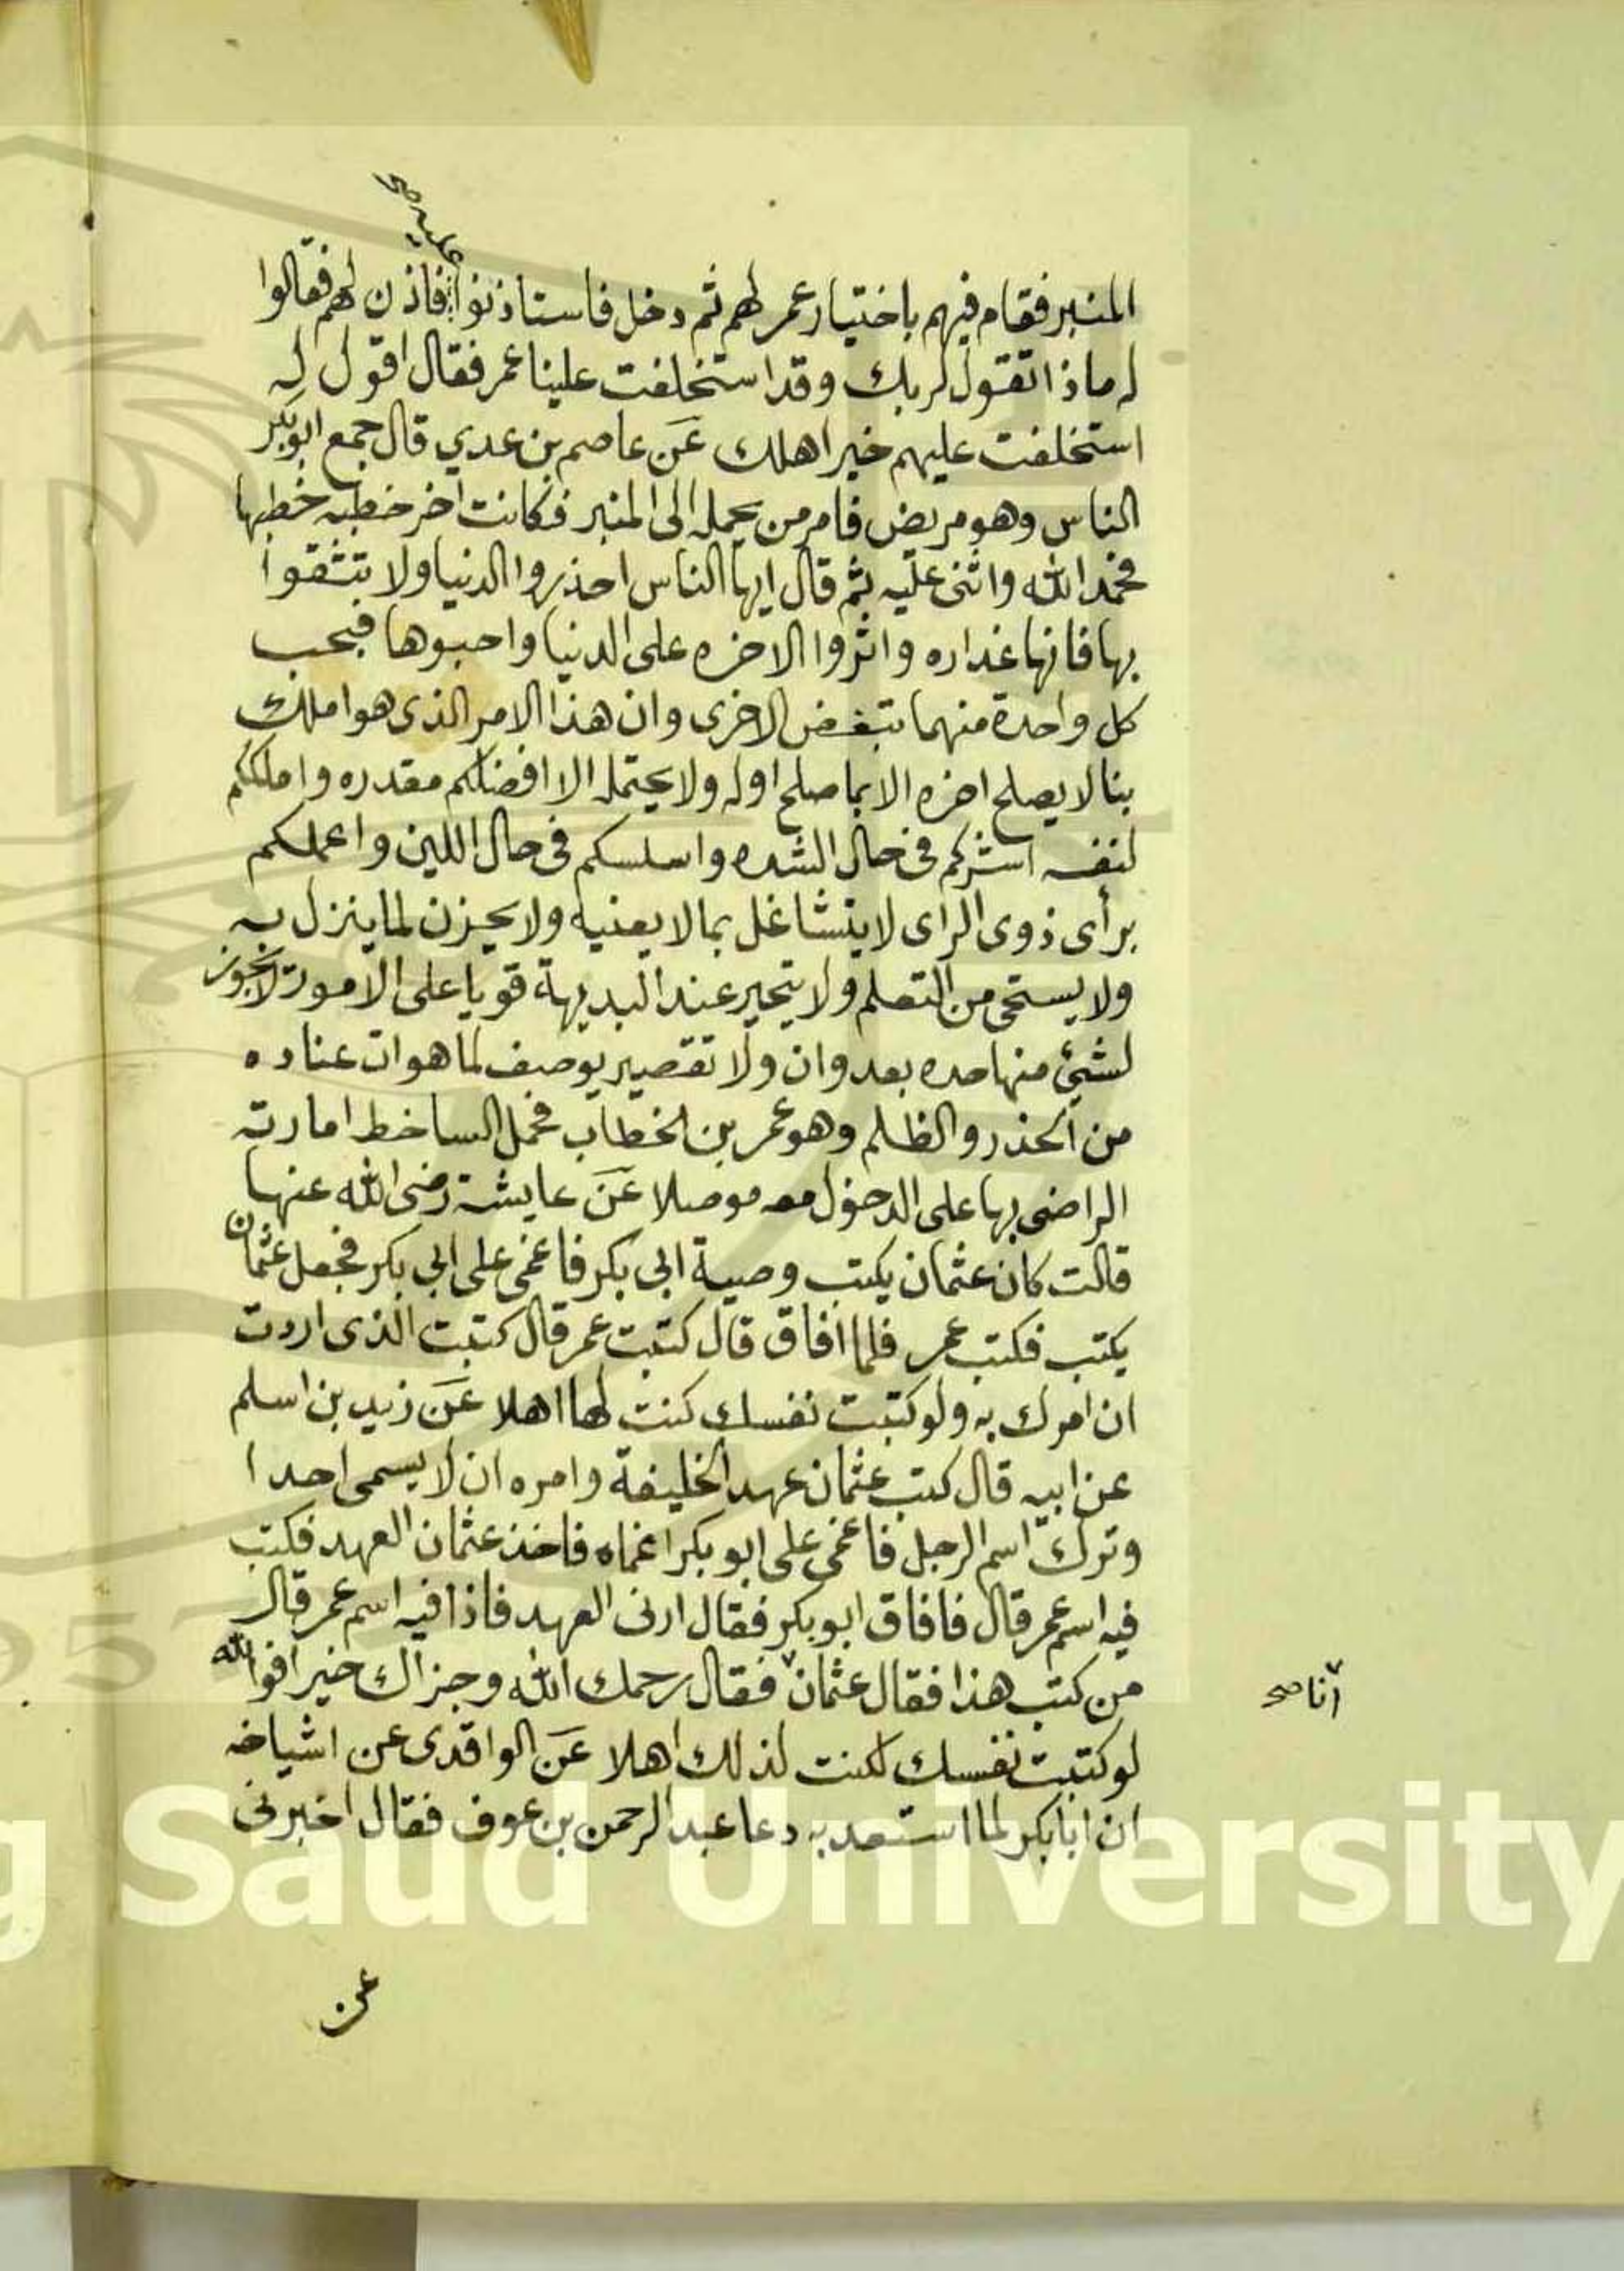 عليه صح
المنبر فقام فيهم باختيار عمر لهم ثم دخل فاستاذنوا فاذن لهم فقالوا
له ماذا تقول لربك وقد استخلفت علينا عمر فقال اقول له
استخلفت عليهم خير اهلك عن عاصم بن عدي قال جمع ابو بكر
الناس وهو مريض فامر من يحمله الى المنبر فكانت اخر خطبه خطبها
فحمد الله واثنى عليه ثم قال ايها الناس احذروا الدنيا ولا تتثقوا
بها فانها غداره واثروا الاخره على الدنيا واحبوها فبحب
كل واحدة منهما تبغض الاخرى وان هذا الامر الذى هو املك
بنا لا يصلح اخره الا بما صلح اوله ولا يحتمله الا افضلكم مقدره واملككم
لنفسه اشدكم فى حال الشده واسلسكم فى حال اللين واعملكم
برأى ذوى الراى لا يتشاغل بما لا يعنيه ولا يحزن لما ينزل به
ولا يستحى من التعلم ولا يتحير عند البديهة قويا على الامور لا يجوز
لشيئ منها حده بعدوان ولا تقصير يوصف لما هوات عناده
من الحذر والظلم وهو عمر بن الخطاب فحمل الساخط امارته
الراضى بها على الدخول معه موصلا عن عايشة رضى الله عنها
قالت كان عثمان يكتب وصية ابى بكر فاغمى على ابى بكر فجعل عثمان
يكتب فكتب عمر فلما افاق قال كتبت عمر قال كتبت الذى اردت
ان امرك به ولو كتبت نفسك كنت لها اهلا عن زيد بن اسلم
عن ابيه قال كتب عثمان عهد الخليفة وامره ان لا يسمى احدا
وترك اسم الرجل فاغمى على ابو بكر اغماه فاخذ عثمان العهد فكتب
فيه اسم عمر قال فافاق ابو بكر فقال ارنى العهد فاذا فيه اسم عمر قال
من كتب هذا فقال عثمان فقال رحمك الله وجزاك خيرا فوالله
انا صح
لو كتبت نفسك لكنت لذلك اهلا عن الواقدى عن اشياخه
ان ابا بكر لما استعد به دعا عبد الرحمن بن عوف فقال اخبرنى
عن
g Saud University